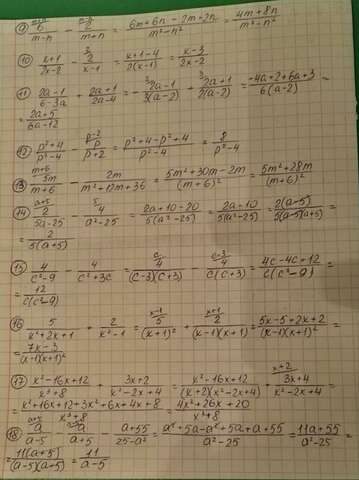 9) 6/(m-n) - 2/(m+n) = (6m+6n-2m+2n)/(m²-n²) = (4m+8n)/(m²-n²)
10) (x+1)/(2x-2) - 2/(x-1) = (x+1-4)/(2(x-1)) = (x-3)/(2x-2)
11) (2a-1)/(6-3a) + (2a+1)/(2a-4) = -(2a-1)/(3(a-2)) + (2a+1)/(2(a-2)) = (-4a+2+6a+3)/(6(a-2)) =
= (2a+5)/(6a-12)
12) (p²+4)/(p²-4) - p/(p+2) = (p²+4-p²+4)/(p²-4) = 8/(p²-4)
13) 3m/(m+6) - 2m/(m²+12m+36) = (5m²+30m-2m)/(m+6)² = (5m²+28m)/(m+6)²
14) 2/(5a-25) - 4/(a²-25) = (2a+10-20)/(5(a²-25)) = (2a-10)/(5(a²-25)) = 2(a-5)/(5(a-5)(a+5)) =
= 2/(5(a+5))
15) 4/(c²-9) - 4/(c²+3c) = 4/((c-3)(c+3)) - 4/(c(c+3)) = (4c-4c+12)/(c(c²-9)) =
= 12/(c(c²-9))
16) 5/(x²+2x+1) + 2/(x²-1) = 5/(x+1)² + 2/((x-1)(x+1)) = (5x-5+2x+2)/((x-1)(x+1)²) =
= (7x-3)/((x-1)(x+1)²)
17) (x²-16x+12)/(x³+8) + (3x+2)/(x²-2x+4) = (x²-16x+12)/((x+2)(x²-2x+4)) + (3x+4)/(x²-2x+4) =
= (x²+16x+12+3x²+6x+4x+8)/(x³+8) = (4x²+26x+20)/(x³+8)
18) a/(a-5) - a/(a+5) - (a+55)/(25-a²) = (a²+5a-a²+5a+a+55)/(a²-25) = (11a+55)/(a²-25) =
= 11(a+5)/((a-5)(a+5)) = 11/(a-5)